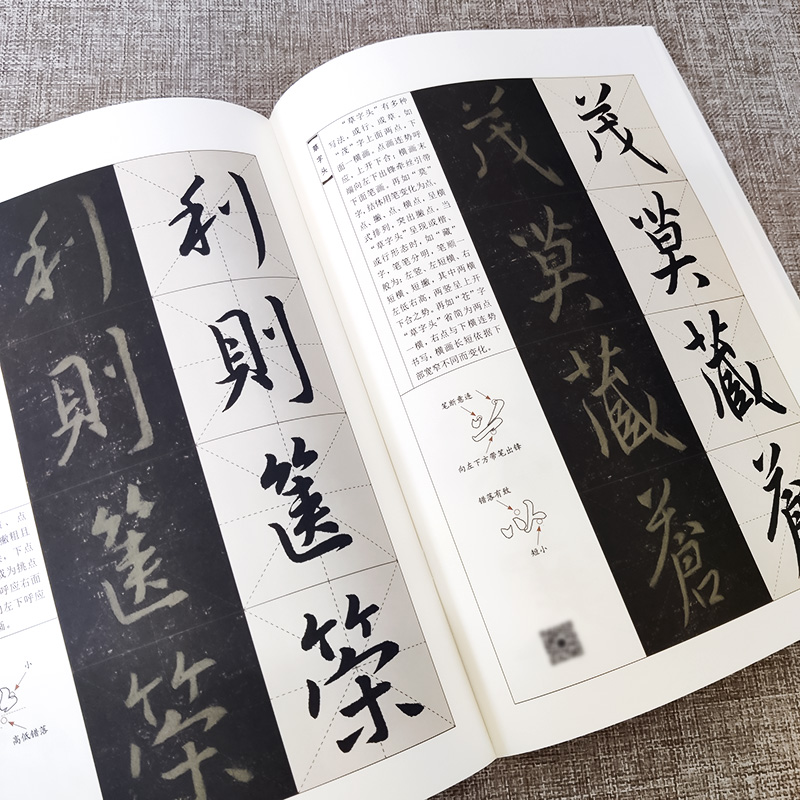 利
則
篋
策
利
則
篋
策
、点
撇粗且
下点
或为挑点
呼应右面
左下呼应
小
高低错落
草字头
“草字头”有多种
写法，或行、或草，如
“茂”字上面两点，下
面一横画，点画连势呼
应，上开下合；横画末
端向左下出锋牵丝引带
下面笔画，再如“莫”
字，结体用笔变化为点、
点、撇、点、横点，呈横
式排列，突出撇点，当
“草字头”呈现或楷
或行形态时，如“藏”
字，笔笔分明，笔顺
般为：左竖、左短横、右
短横、短撇，其中两横
左低右高，两竖呈上开
下合之势，再如“苍”字
“草字头”省简为两点
一横，右点与下横连势
书写，横画长短依据下
部宽窄不同而变化。
笔断意连
向左下方带笔出锋
错落有致
短小
茂
莫
藏
蒼
茂
莫
藏
蒼